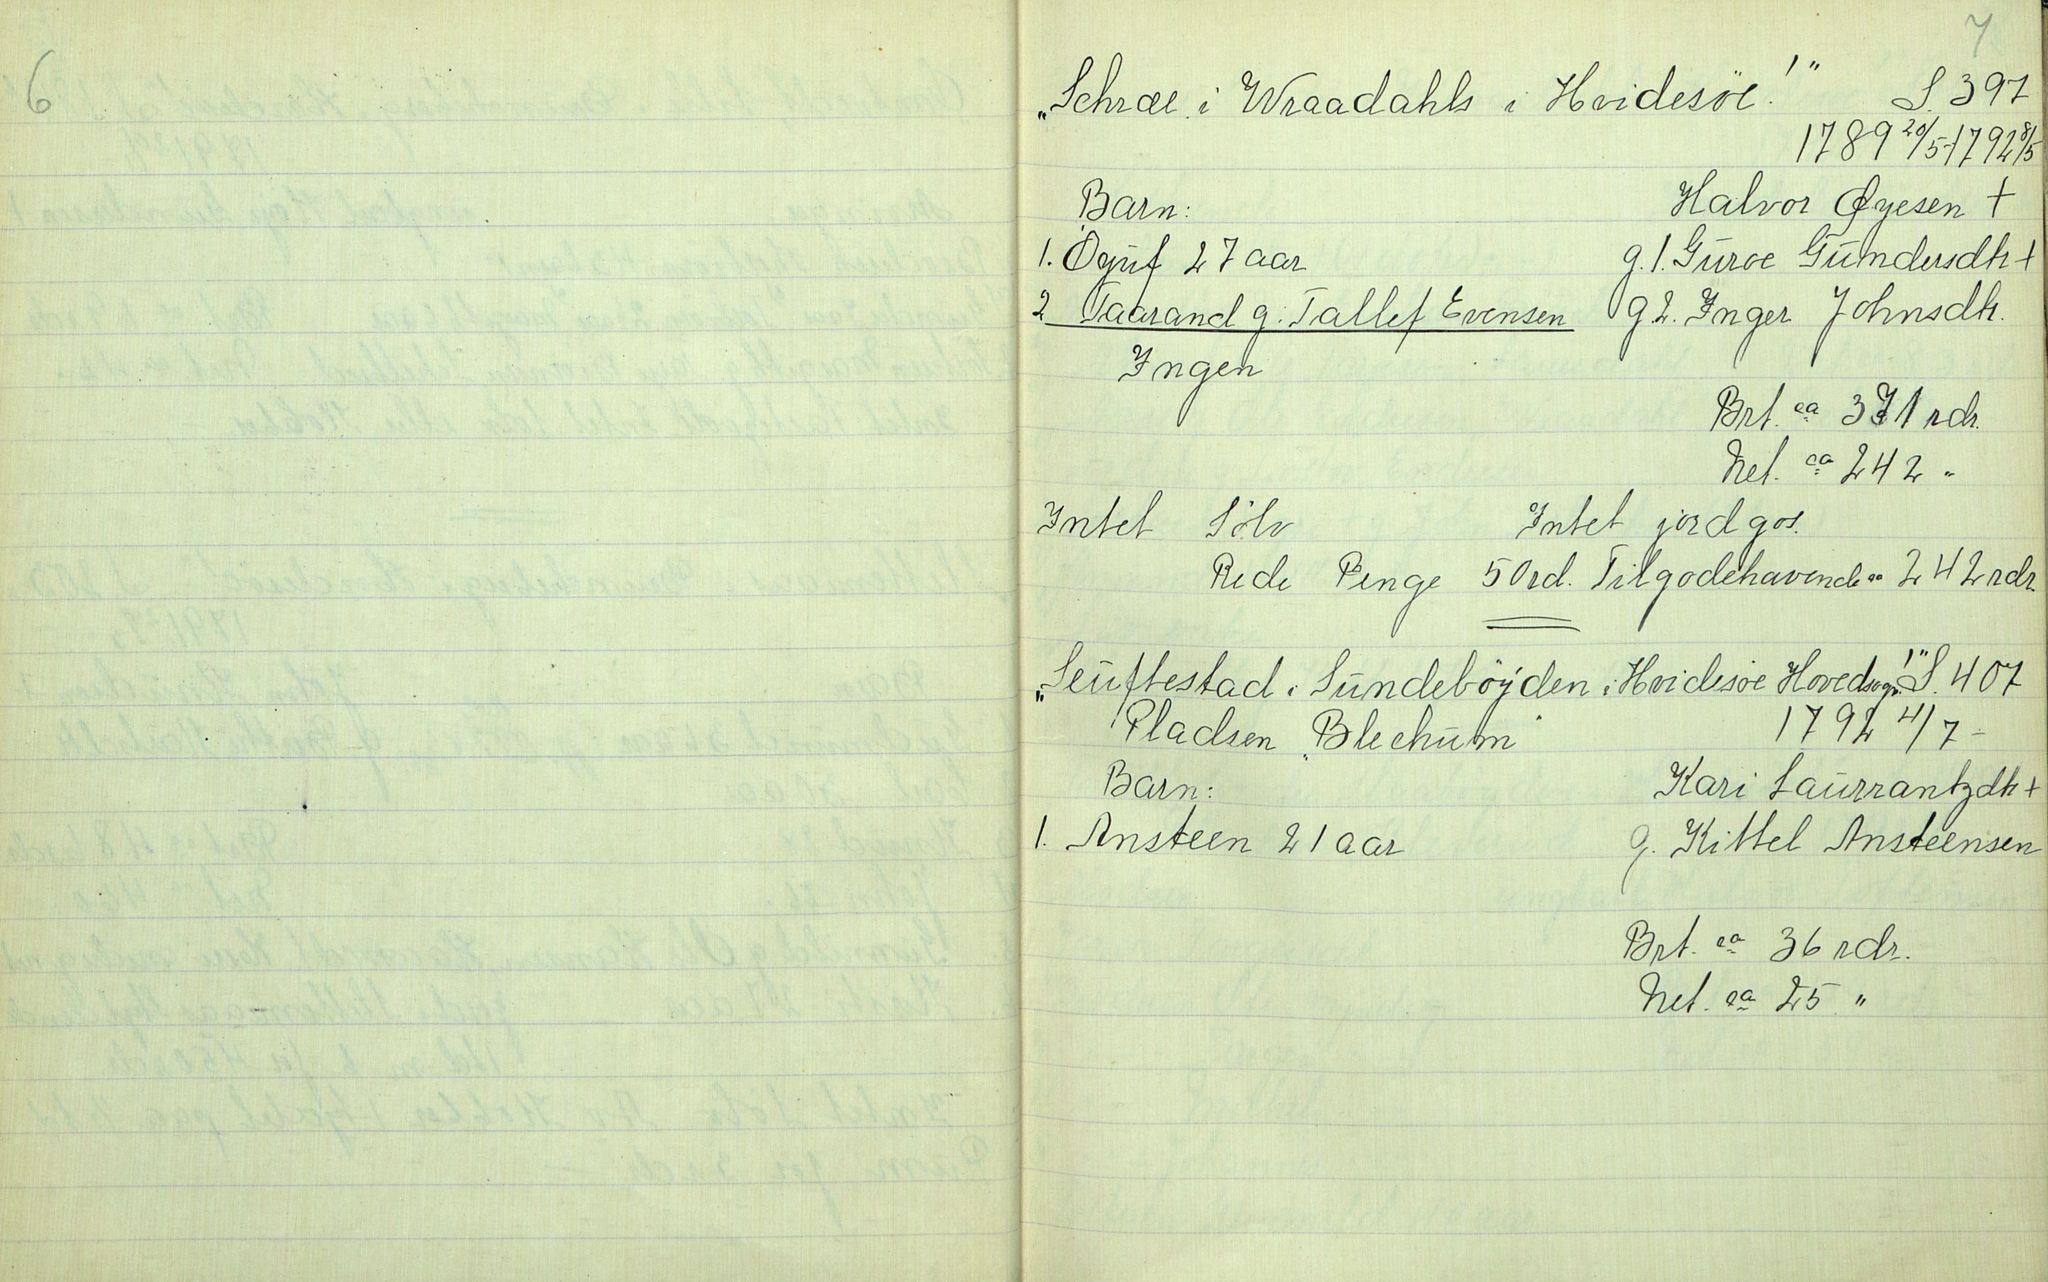 6
7
„Schræ i Wraadahls i Hvidesöe!" S. 397
1789 20/5-1792 8/5
Barn: Halvor Øyesen †
1. Öyuf 27 aar g. 1. Guroe Gundersdtr †
2 Taarand g. Tallef Evensen g 2. Inger Johnsdtr.
Ingen
Brt. ca 371 rdr.
Net. ca 242 "
Intet Sölv Intet jordgos.
Rede Penge 50 rd. Tilgodehavende ca 242 rdr.
„Seuftestad i Sundeböyden i Hvidesöe Hovedsogn!" S. 407
Pladsen „Blechum" 1792 4/7 -
Barn: Kari Laurrantzdtr †
1. Ansteen 21 aar g. Kittel Ansteensen
Brt. ca 36 rdr.
Net. ca 25 "